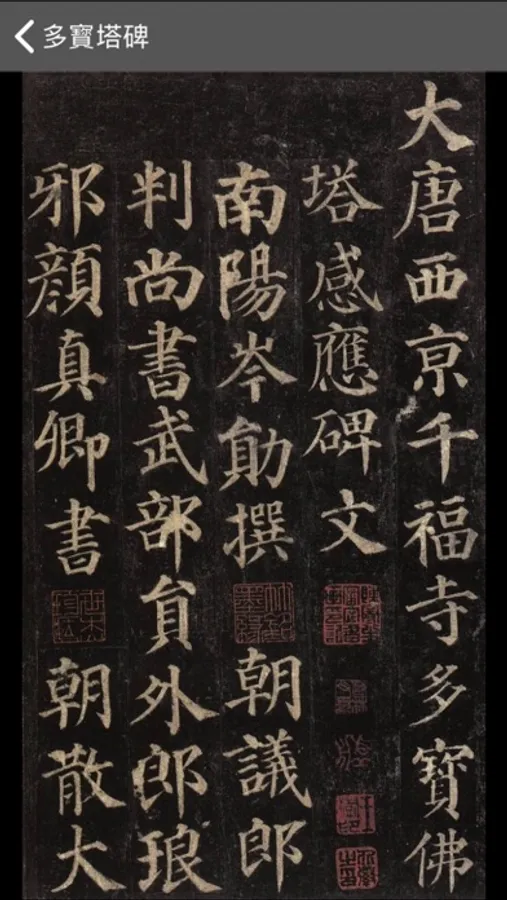 多寶塔碑
大唐西京千福寺多寶佛
塔感應碑文
南陽岑勛撰 朝議郎
判尚書武部員外郎琅
邪顏真卿書 朝散大